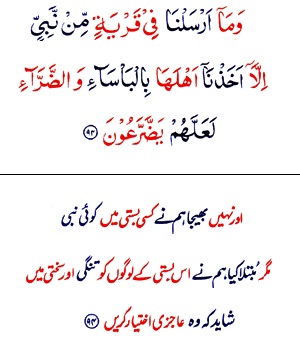 وَمَاۤ اَرْسَلْنَا فِیْ قَرْیَةٍ مِّنْ نَّبِیٍّ
اِلَّاۤ اَخَذْنَاۤ اَهْلَهَا بِالْبَاْسَآءِ وَ الضَّرَّآءِ
لَعَلَّهُمْ یَضَّرَّعُوْنَ ﴿۹۴﴾
اور نہیں بھیجا ہم نے کسی بستی میں کوئی نبی
مگر مُبتلا کیا ہم نے اس بستی کے لوگوں کو تنگی اور سختی میں
شاید کہ وہ عاجزی اختیار کریں ﴿۹۴﴾